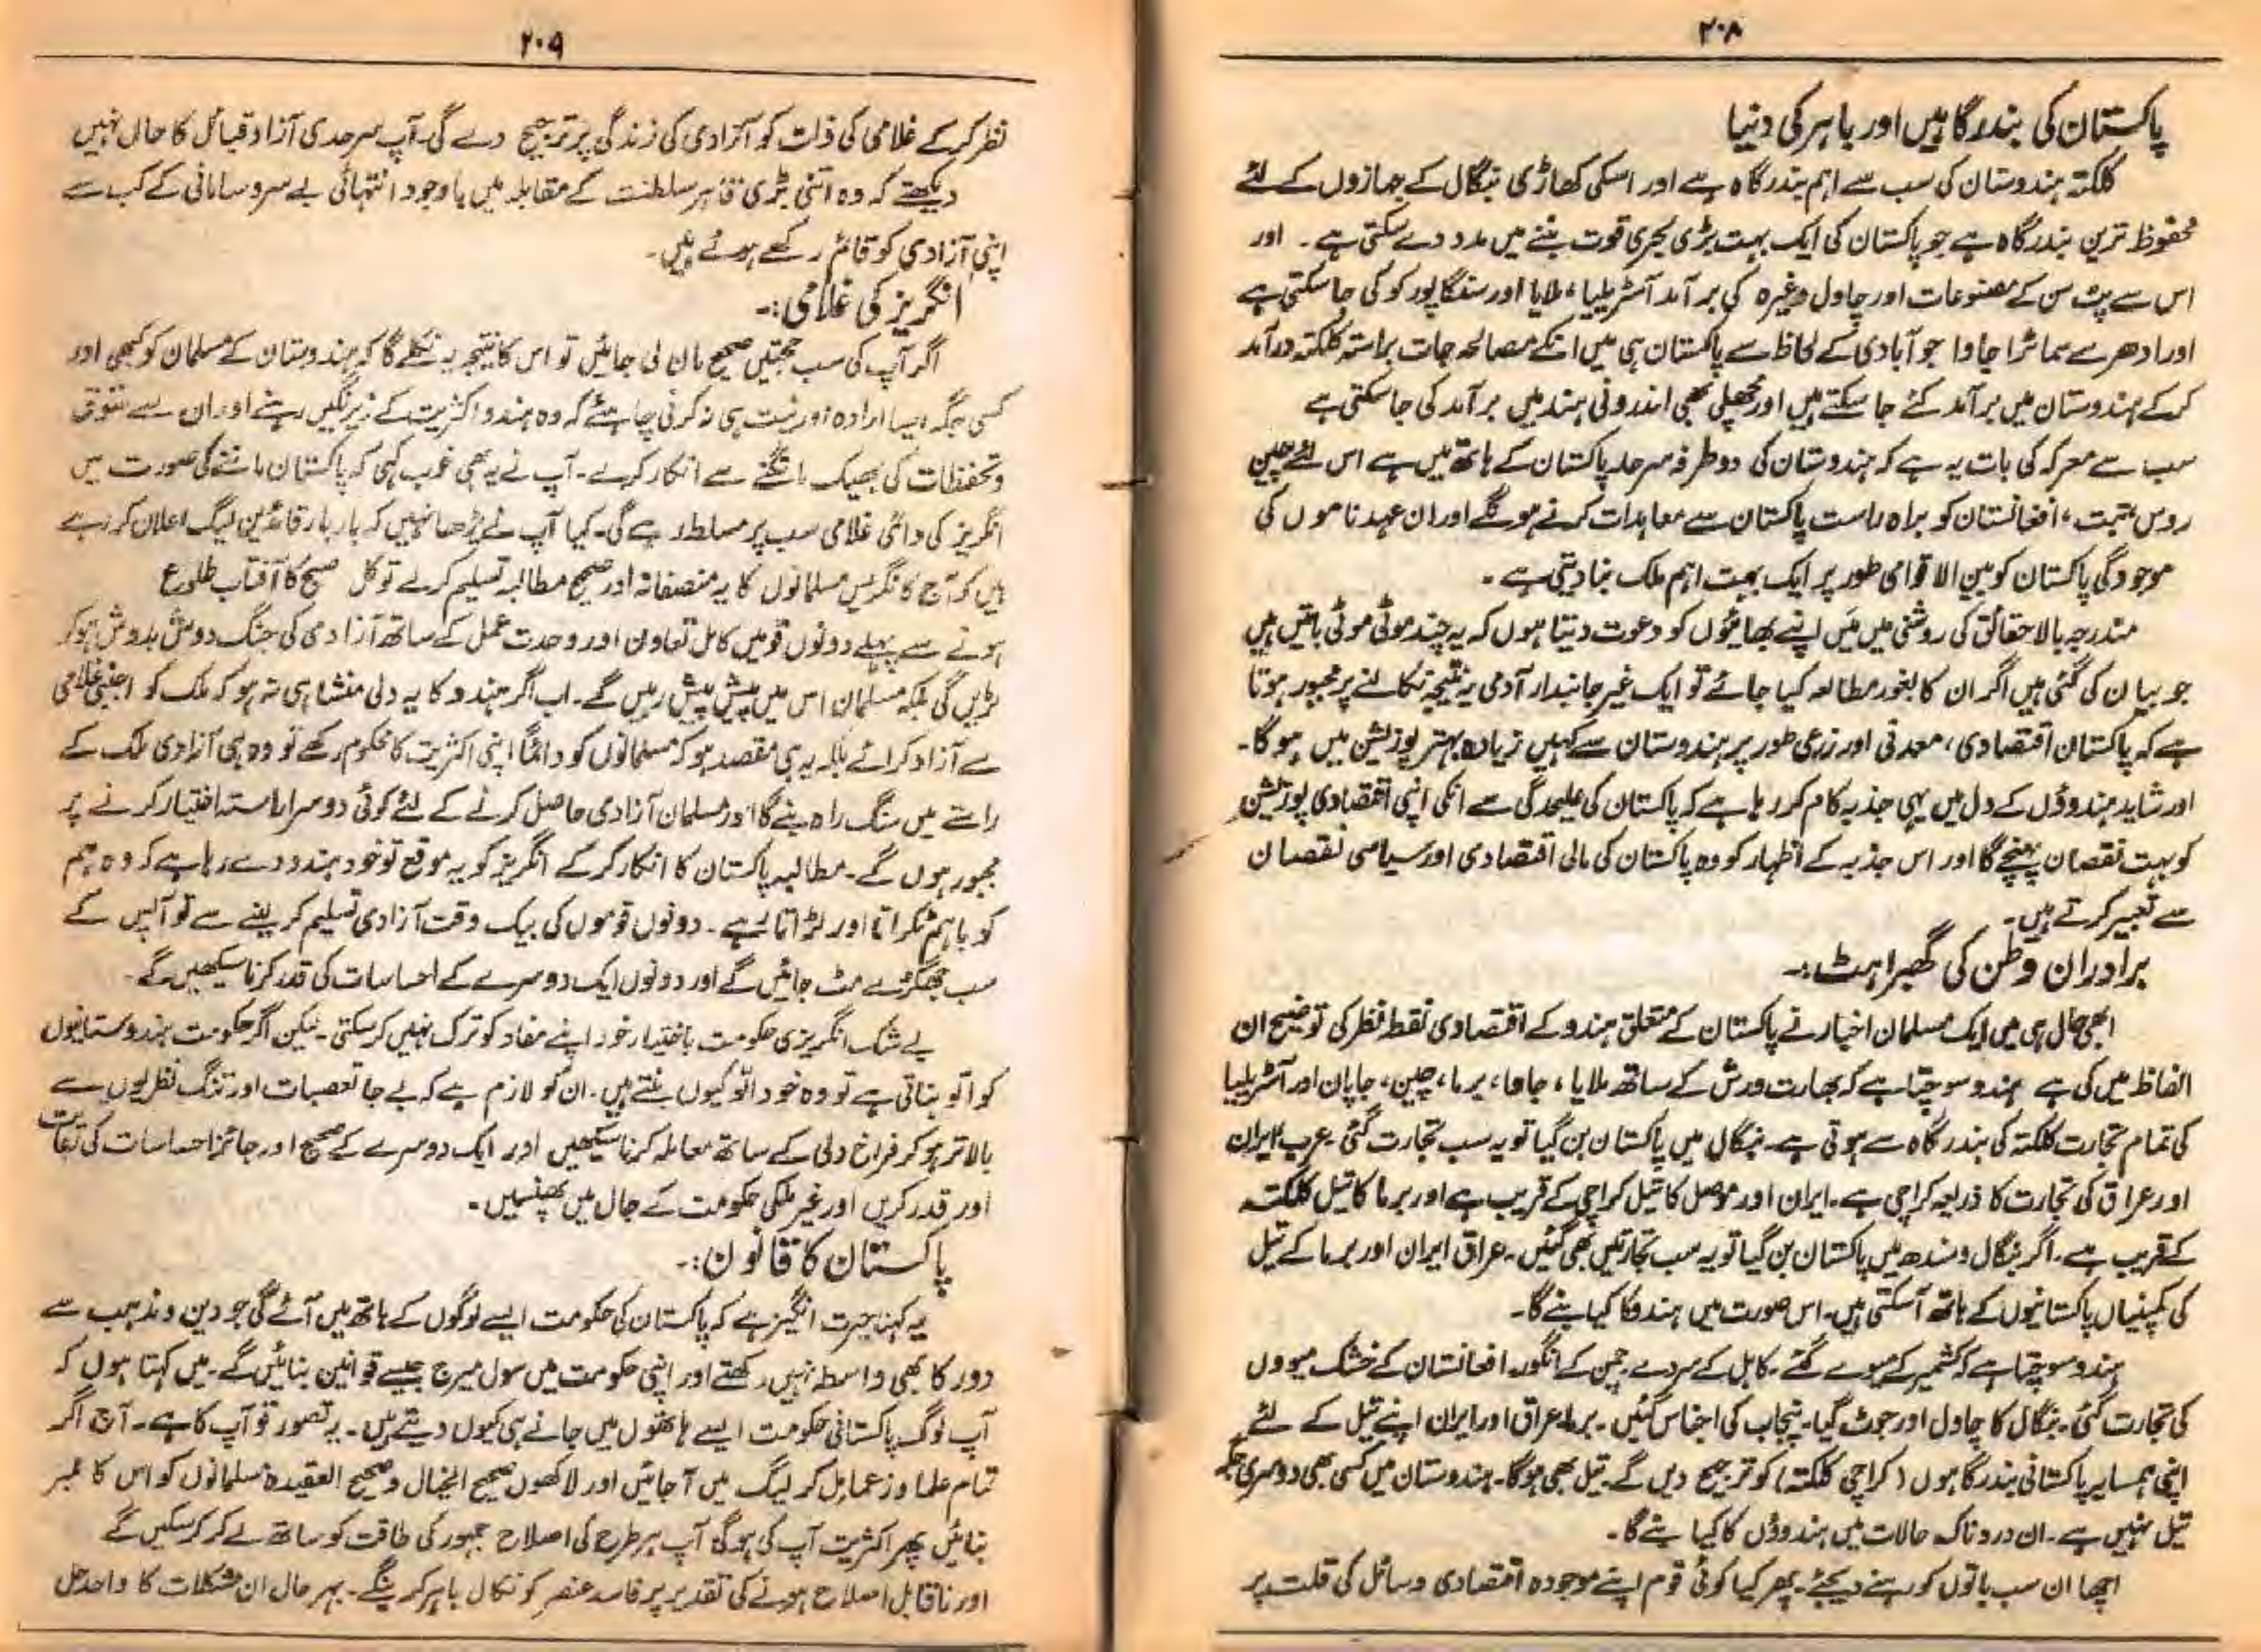 ۲۰۸
پاکستان کی بندرگاہیں اور باہر کی دنیا
کلکتہ ہندوستان کی سب سے اہم بندرگاہ ہے اور اسکی کھاڑی بنگال کے جہازوں کے لئے
محفوظ ترین بندرگاہ ہے جو پاکستان کی ایک بہت بڑی بحری قوت بننے میں مدد دے سکتی ہے۔ اور
اس سے پٹ سن کے مصنوعات اور چاول وغیرہ کی برآمد آسٹریلیا، ملایا اور سنگاپور کو کی جاسکتی ہے
اور ادھر سے سماٹرا جاوا جو آبادی کے لحاظ سے پاکستان ہی ہیں انکے مصالحہ جات براستہ کلکتہ درآمد
کرکے ہندوستان میں برآمد کئے جا سکتے ہیں اور مچھلی بھی اندرونی ہند میں برآمد کی جا سکتی ہے
سب سے معرکہ کی بات یہ ہے کہ ہندوستان کی دو طرفہ سرحد پاکستان کے ہاتھ میں ہے اس لئے چین
روس، تبت، افغانستان کو براہ راست پاکستان سے معاہدات کرنے ہونگے اور ان عہد ناموں کی
موجودگی پاکستان کو بین الاقوامی طور پر ایک بہت اہم ملک بنا دیتی ہے۔
مندرجہ بالا حقائق کی روشنی میں میں اپنے بھائیوں کو دعوت دیتا ہوں کہ یہ چند موٹی موٹی باتیں ہیں
جو بیان کی گئی ہیں اگر ان کا بغور مطالعہ کیا جائے تو ایک غیر جانبدار آدمی یہ نتیجہ نکالنے پر مجبور ہوتا
ہے کہ پاکستان اقتصادی، معدنی اور زرعی طور پر ہندوستان سے کہیں زیادہ بہتر پوزیشن میں ہوگا۔
اور شاید ہندوؤں کے دل میں یہی جذبہ کام کر رہا ہے کہ پاکستان کی علیحدگی سے انکی اپنی اقتصادی پوزیشن
کو بہت نقصان پہنچے گا اور اس جذبہ کے اظہار کو وہ پاکستان کی مالی اقتصادی اور سیاسی نقصان
سے تعبیر کرتے ہیں۔
برادران وطن کی گھبراہٹ:۔
ابھی حال ہی میں ایک مسلمان اخبار نے پاکستان کے متعلق ہندو کے اقتصادی نقطہ نظر کی توضیح ان
الفاظ میں کی ہے ہندو سوچتا ہے کہ بھارت ورش کے ساتھ ملایا، جاوا، برما، چین، جاپان اور آسٹریلیا
کی تمام تجارت کلکتہ کی بندرگاہ سے ہوتی ہے۔ بنگال میں پاکستان بن گیا تو یہ سب تجارت گئی۔ عرب، ایران
اور عراق کی تجارت کا ذریعہ کراچی ہے۔ ایران اور موصل کا تیل کراچی کے قریب ہے اور برما کا تیل کلکتہ
کے قریب ہے۔ اگر بنگال و سندھ میں پاکستان بن گیا تو یہ سب تجارتیں بھی گئیں۔ عراق ایران اور برما کے تیل
کی کمپنیاں پاکستانیوں کے ہاتھ آسکتی ہیں۔ اس صورت میں ہندو کا کیا بنے گا۔
ہندو سوچتا ہے کہ کشمیر کے میوے گئے۔ کابل کے سردے۔ چمن کے انگور۔ افغانستان کے خشک میووں
کی تجارت گئی۔ بنگال کا چاول اور جوٹ گیا۔ پنجاب کی اجناس گئیں۔ برما، عراق اور ایران اپنے تیل کے لئے
اپنی ہمسایہ پاکستانی بندرگاہوں (کراچی کلکتہ) کو ترجیح دیں گے۔ تیل بھی ہوگا۔ ہندوستان میں کسی بھی دوسری جگہ
تیل نہیں ہے۔ ان دردناک حالات میں ہندوؤں کا کیا بنے گا۔
اچھا ان سب باتوں کو رہنے دیجئے۔ پھر کیا کوئی قوم اپنے موجودہ اقتصادی وسائل کی قلت پر
۲۰۹
نظر کرکے غلامی کی ذلت کو آزادی کی زندگی پر ترجیح دے گی۔ آپ سرحدی آزاد قبائل کا حال نہیں
دیکھتے کہ وہ اتنی بڑی قاہر سلطنت کے مقابلہ میں باوجود انتہائی بے سروسامانی کے کب سے
اپنی آزادی کو قائم رکھے ہوئے ہیں۔
انگریز کی غلامی:۔
اگر آپ کی سب حجتیں صحیح مان لی جائیں تو اس کا نتیجہ یہ نکلے گا کہ ہندوستان کے مسلمان کو کبھی اور
کسی جگہ ایسا ارادہ اور نیت ہی نہ کرنی چاہئے کہ وہ ہندو اکثریت کے زیرنگیں رہنے اور ان سے حقوق
و تحفظات کی بھیک مانگنے سے انکار کرے۔ آپ نے یہ بھی خوب کہی کہ پاکستان ماننے کی صورت میں
انگریز کی دائمی غلامی سب پر مسلط رہے گی۔ کیا آپ نے پڑھا نہیں کہ بار بار قائدین لیگ اعلان کر رہے
ہیں کہ آج کانگریس مسلمانوں کا یہ منصفانہ اور صحیح مطالبہ تسلیم کرلے تو کل صبح کا آفتاب طلوع
ہونے سے پہلے دونوں قومیں کامل تعاون اور وحدت عمل کے ساتھ آزادی کی جنگ دوش بدوش ہوکر
لڑیں گی بلکہ مسلمان اس میں پیش پیش رہیں گے۔ اب اگر ہندو کا یہ دلی منشا ہی نہ ہو کہ ملک کو اجنبی غلامی
سے آزاد کرائے بلکہ یہ ہی مقصد ہو کہ مسلمانوں کو دائماً اپنی اکثریت کا محکوم رکھے تو وہ ہی آزادی ملک کے
راستے میں سنگ راہ بنے گا اور مسلمان آزادی حاصل کرنے کے لئے کوئی دوسرا راستہ اختیار کرنے پر
مجبور ہوں گے۔ مطالبہ پاکستان کا انکار کرکے انگریز کو یہ موقع تو خود ہندو دے رہا ہے کہ وہ ہم
کو باہم ٹکراتا اور لڑاتا رہے۔ دونوں قوموں کی بیک وقت آزادی تسلیم کر لینے سے تو آپس کے
سب جھگڑے مٹ جائیں گے اور دونوں ایک دوسرے کے احساسات کی قدر کرنا سیکھیں گے۔
بے شک انگریزی حکومت باختیار خود اپنے مفاد کو ترک نہیں کرسکتی۔ لیکن اگر حکومت ہندوستانیوں
کو الو بناتی ہے تو وہ خود الو کیوں بنتے ہیں۔ ان کو لازم ہے کہ بے جا تعصبات اور تنگ نظریوں سے
بالاتر ہوکر فراخ دلی کے ساتھ معاملہ کرنا سیکھیں اور ایک دوسرے کے صحیح اور جائز احساسات کی
اور قدر کریں اور غیر ملکی حکومت کے جال میں نہ پھنسیں۔
پاکستان کا قانون:۔
یہ کہنا حیرت انگیز ہے کہ پاکستان کی حکومت ایسے لوگوں کے ہاتھ میں آئے گی جو دین و مذہب سے
دور کا بھی واسطہ نہیں رکھتے اور اپنی حکومت میں سول میرج جیسے قوانین بنائیں گے۔ میں کہتا ہوں کہ
آپ لوگ پاکستانی حکومت ایسے ہاتھوں میں جانے ہی کیوں دیتے ہیں۔ یہ قصور تو آپ کا ہے۔ آج اگر
تمام علما و زعما مل کر لیگ میں آجائیں اور لاکھوں صحیح الخیال و صحیح العقیدہ مسلمانوں کو اس کا ممبر
بنائیں پھر اکثریت آپ کی ہوگی آپ ہر طرح کی اصلاح جمہور کی طاقت کو ساتھ لے کر کرسکیں گے
اور ناقابل اصلاح ہونے کی تقدیر پر فاسد عنصر کو نکال باہر کرینگے۔ بہر حال ان مشکلات کا واحد حل